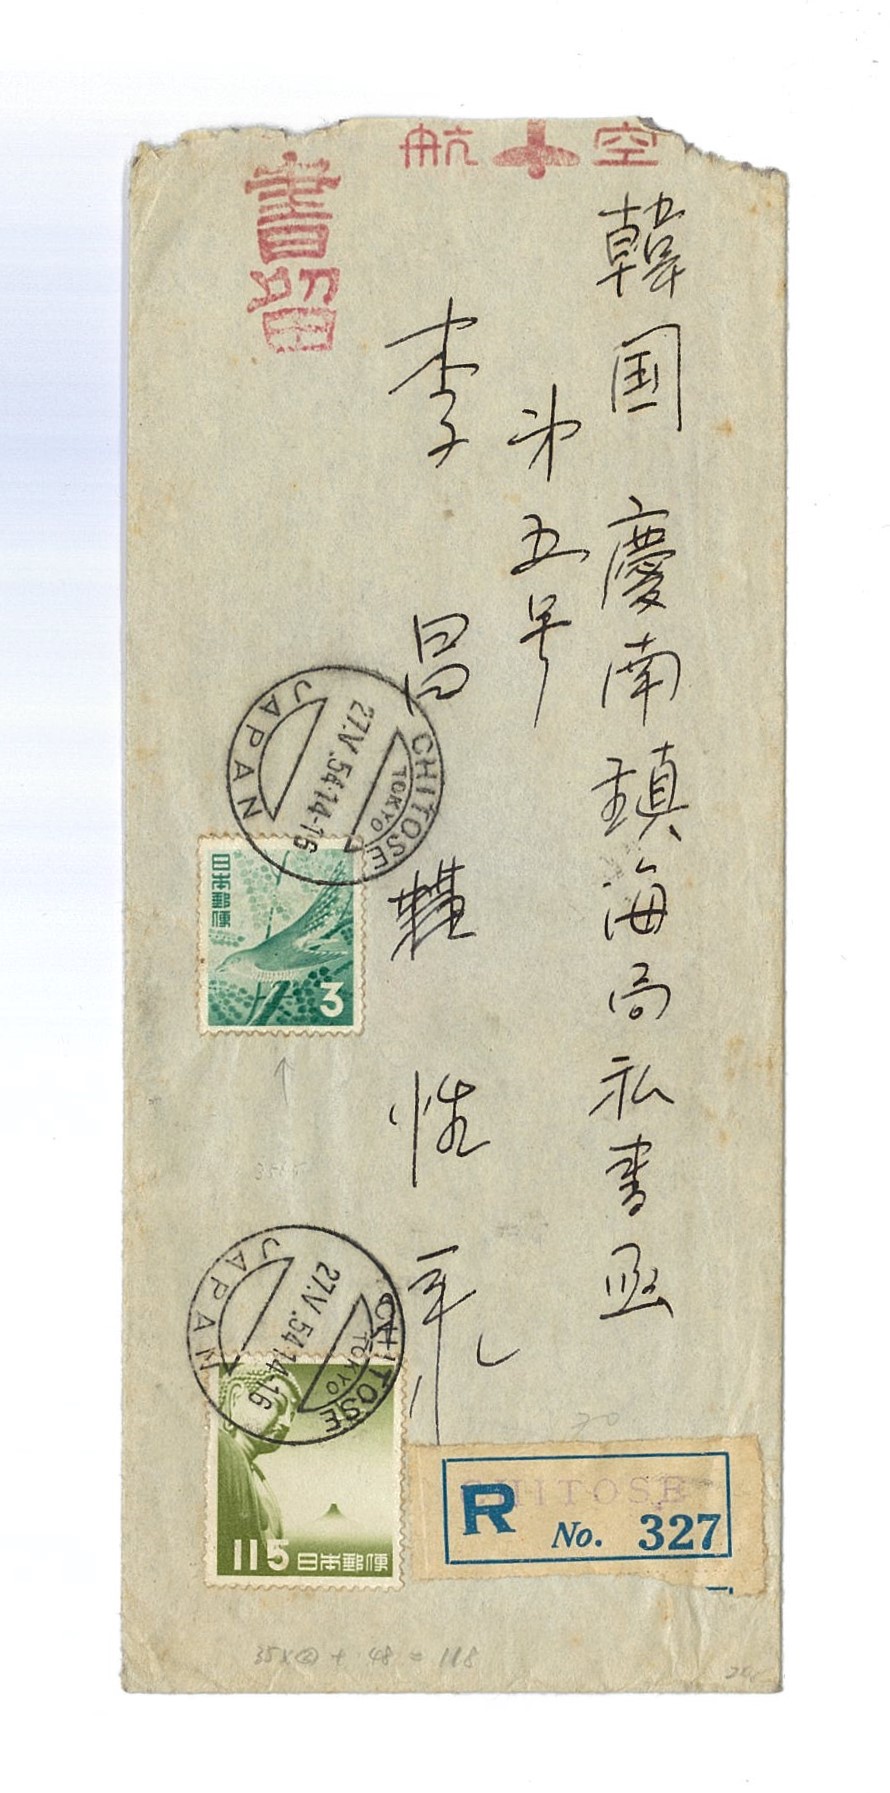 航空
書留
韓国慶南鎮海局私書函
第五号
李昌
性
CHITOSE
TOKYO
27.V.54.14-16
JAPAN
日本郵便
3
CHITOSE
TOKYO
27.V.54.14-16
JAPAN
115 日本郵便
CHITOSE
R No. 327
35×② + 48 = 118